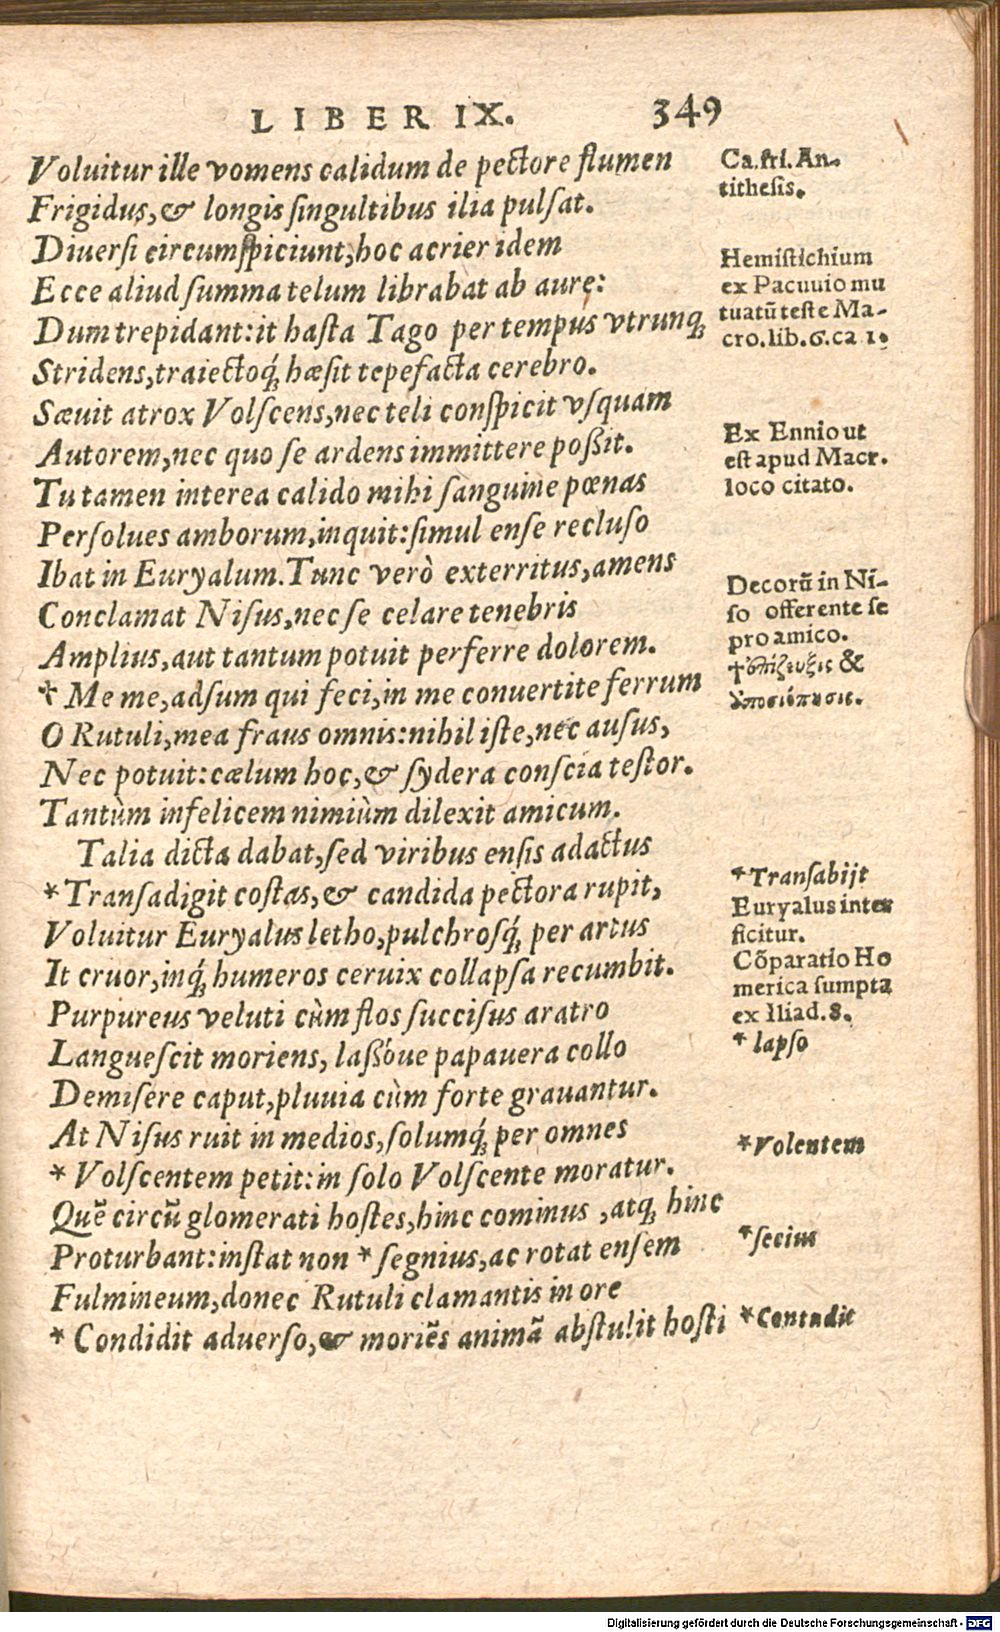 LIBER IX. 349
Voluitur ille vomens calidum de pectore flumen
Frigidus, & longis ſingultibus ilia pulſat.
Diuerſi circumſpiciunt, hoc acrier idem
Ecce aliud ſumma telum librabat ab aure:
Dum trepidant: it haſta Tago per tempus vtrunq;
Stridens, traiectoq́; hæſit tepefacta cerebro.
Sæuit atrox Volſcens, nec teli conſpicit vſquam
Autorem, nec quo ſe ardens immittere poßit.
Tu tamen interea calido mihi ſanguine pœnas
Perſolues amborum, inquit: ſimul enſe recluſo
Ibat in Euryalum. Tunc verò exterritus, amens
Conclamat Niſus, nec ſe celare tenebris
Amplius, aut tantum potuit perferre dolorem.
† Me me, adſum qui feci, in me conuertite ferrum
O Rutuli, mea fraus omnis: nihil iſte, nec auſus,
Nec potuit: cælum hoc, & ſydera conſcia teſtor.
Tantùm infelicem nimiùm dilexit amicum.
Talia dicta dabat, ſed viribus enſis adactus
* Tranſadigit coſtas, & candida pectora rupit,
Voluitur Euryalus letho, pulchroſq́; per artus
It cruor, inq́; humeros ceruix collapſa recumbit.
Purpureus veluti cùm flos ſucciſus aratro
Langueſcit moriens, laßóue papauera collo
Demiſere caput, pluuia cùm forte grauantur.
At Niſus ruit in medios, ſolumq́; per omnes
* Volſcentem petit: in ſolo Volſcente moratur.
Quē circū glomerati hoſtes, hinc cominus, atq; hinc
Proturbant: inſtat non * ſegnius, ac rotat enſem
Fulmineum, donec Rutuli clamantis in ore
* Condidit aduerſo, & moriēs animā abſtulit hoſti
Ca. ſri. An-
titheſis.
Hemiſtichium
ex Pacuuio mu
tuatū teſte Ma-
cro. lib. 6. ca 1.
Ex Ennio ut
eſt apud Macr.
loco citato.
Decorū in Ni-
ſo offerente ſe
pro amico.
† ἐπίζευξις &
ὑποσιόπησις.
* Tranſabijt
Euryalus inter
ficitur.
Cōparatio Ho
merica ſumpta
ex Iliad. 8.
* lapſo
* Volentem
* ſecius
* Contudit
Digitalisierung gefördert durch die Deutsche Forschungsgemeinschaft - DFG